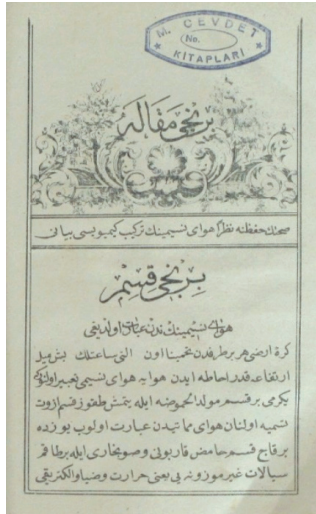 M. CEVDET
No.
KİTAPLARI
برنجی مقاله
صحتك حفظنه نظرا هوای نسیمینك تركیب كیمیویسی بیانی
برنجی قسم
هوای نسیمینك ندن عبارت اولدیغی
كرهٔ ارضی هر بر طرفدن تخمینا اون التی ساعتلك بش میل
ارتفاعه قدر احاطه ایدن هوایه هوای نسیمی تعبیر اولنور
یكرمی بر قسم مولد الحموضه ایله یتمش طقوز قسم ازوت
تسمیه اولنان هوای مماتیدن عبارت اولوب یوزده
بر قاچ قسم حامض قاربونی وصو بخاری ایله بر طاقم
سیالات غیر موزونه یی یعنی حرارت وضیا والكتریقی